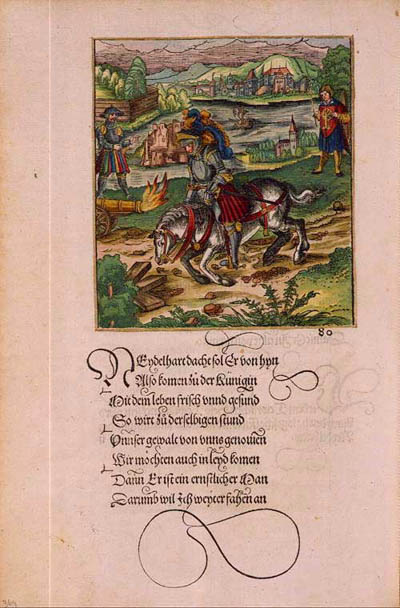 80
NEydelhart dacht sol Er von hyn
Also komen zů der Künigin
Mit dem leben frisch vnnd gesund
So wirt zů derselbigen stund
Vnnser gewalt von vnns genomen
Wir möchten auch in leyd komen
Dann Er ist ein ernstlicher Man
Darumb wil Ich weyter fahen an